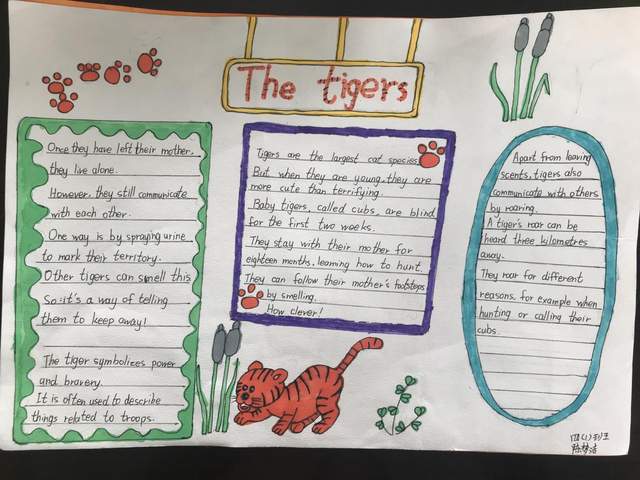 The tigers
Once they have left their mother,
they live alone.
However, they still communicate
with each other.
One way is by spraying urine
to mark their territory.
Other tigers can smell this
So it's a way of telling
them to keep away!
The tiger symbolizes power
and bravery.
It is often used to describe
things related to troops.
Tigers are the largest cat species.
But when they are young, they are
more cute than terrifying.
Baby tigers, called cubs, are blind
for the first two weeks.
They stay with their mother for
eighteen months, learning how to hunt.
They can follow their mother's footsteps
by smelling.
How clever!
Apart from leaving
scents, tigers also
communicate with others
by roaring.
A tiger's roar can be
heard three kilometres
away.
They roar for different
reasons, for example when
hunting or calling their
cubs.
四(1)班
陈梦洁